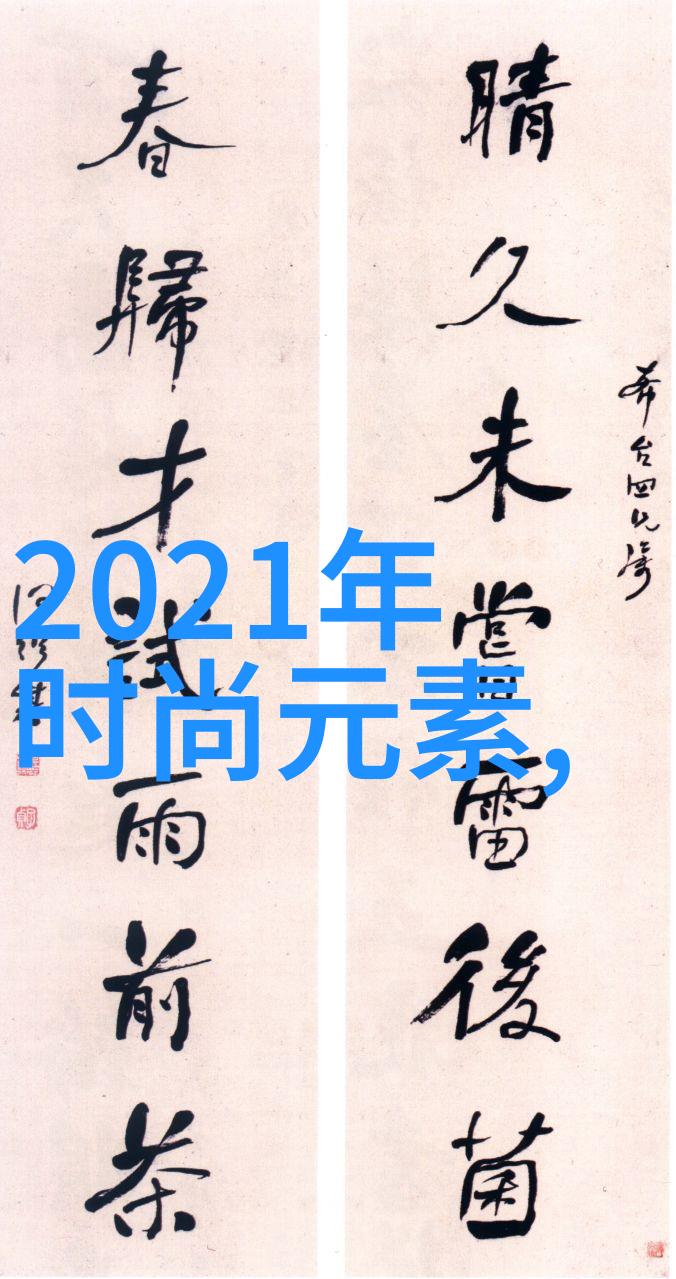 晴久未嘗雷後菌
春歸才試雨前茶
2021年
时尚元素,